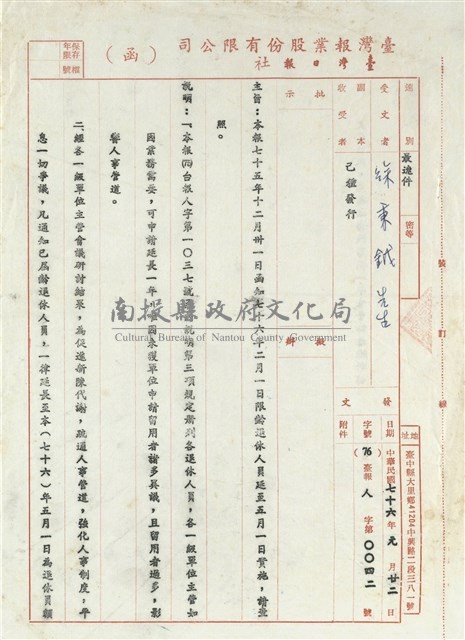 臺灣報業股份有限公司
臺灣日報社
(函)
保存年限
檔號
速別
最速件
密等
受文者
徐秉鉞 先生
副本收受者
己種發行
批示
擬辦
裝
訂
線
地址
臺中縣大里鄉41204中興路二段三八一號
發文
日期
中華民國七十六年元月廿二日
字號
(76)臺報人字第〇〇四二號
附件
主旨：本報七十五年十二月卅一日函知七十六年二月一日限齡退休人員延至五月一日實施，請查
照。
說明：一、本報(75)台報人字第一〇三七號
說明第三項規定屆到各退休人員，各一級單位主管如
因業務需要，可申請延長一年
因未獲單位申請留用者諸多異議，且留用者過多，影
響人事管道。
二、經各一級單位主管會議研討結果，為促進新陳代謝，疏通人事管道，強化人事制度，平
息一切爭議，凡通知已屆齡退休人員，一律延長至本(七十六)年五月一日為退休員額
南投縣政府文化局
Cultural Bureau of Nantou County Government